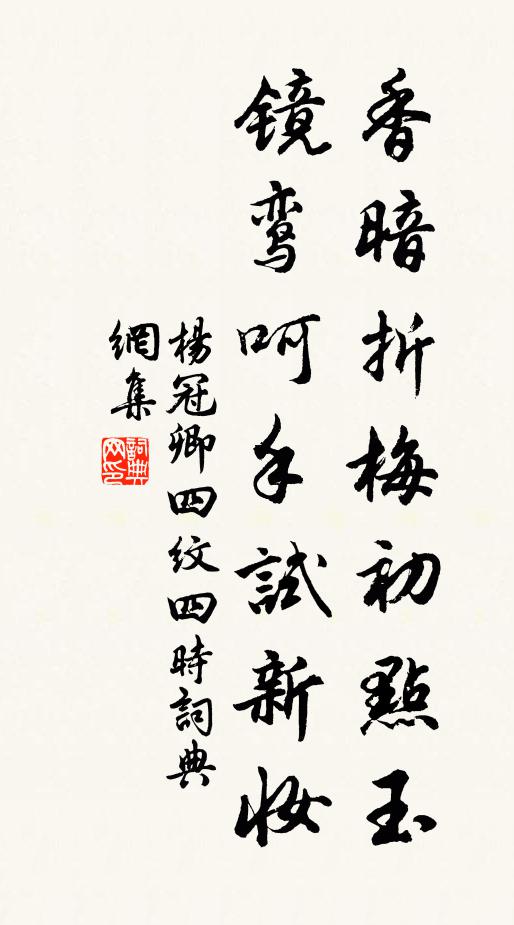 香暗折梅初點玉
镜鸾呵手試新妆
楊冠卿四紋四時詞典
網集
詞典
网印